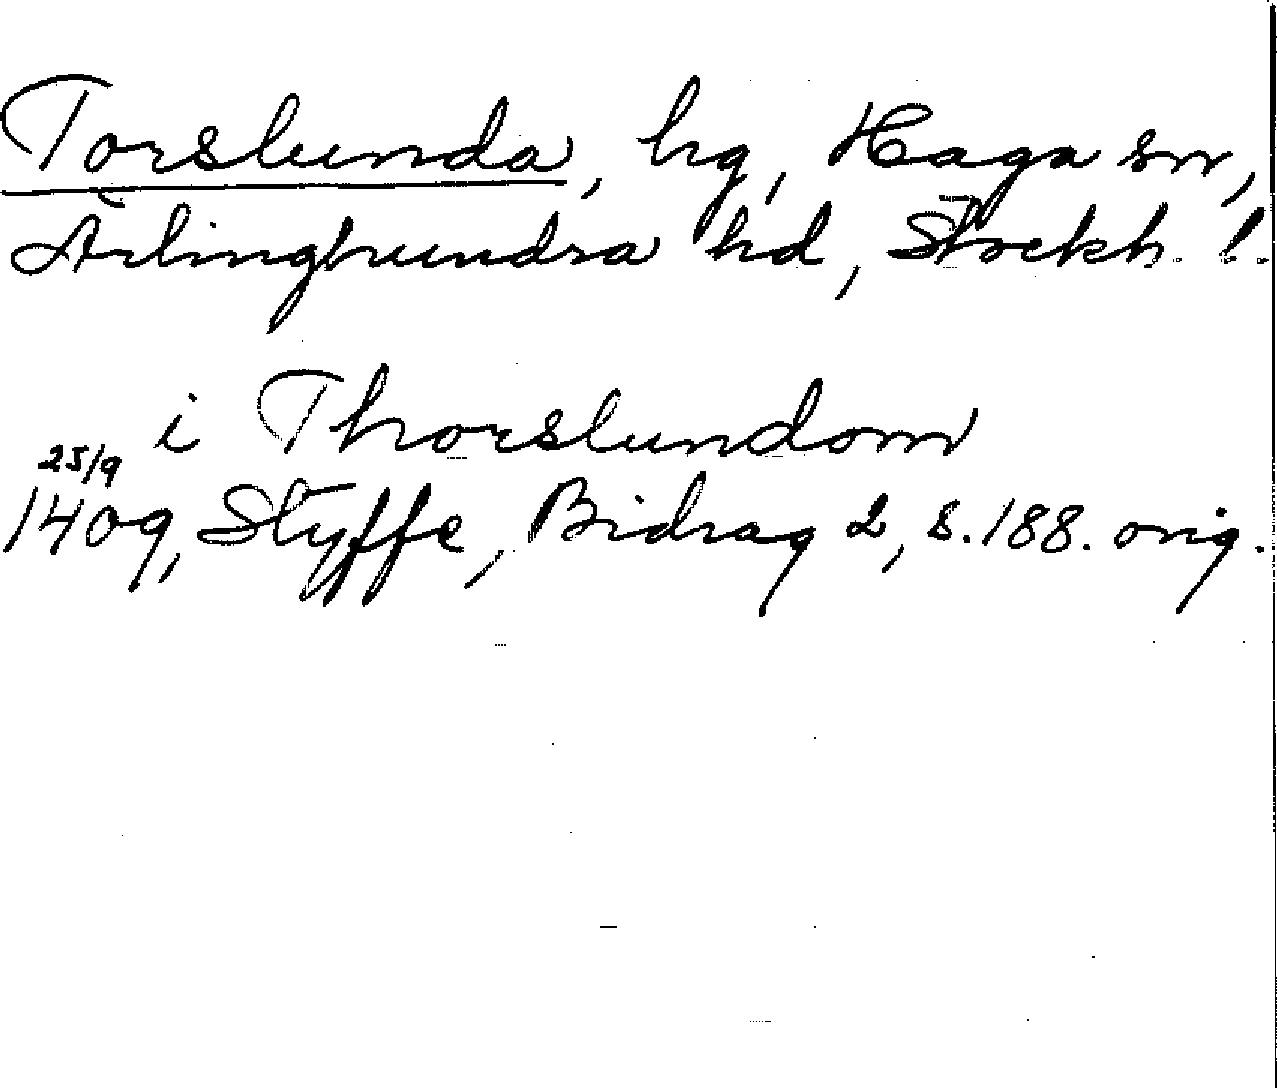 Torslunda, hg, Haga sn,
Ärlinghundra hd, Stockh. l.
i Thorslundom
25/9
1409, Styffe, Bidrag 2, s. 188. orig.